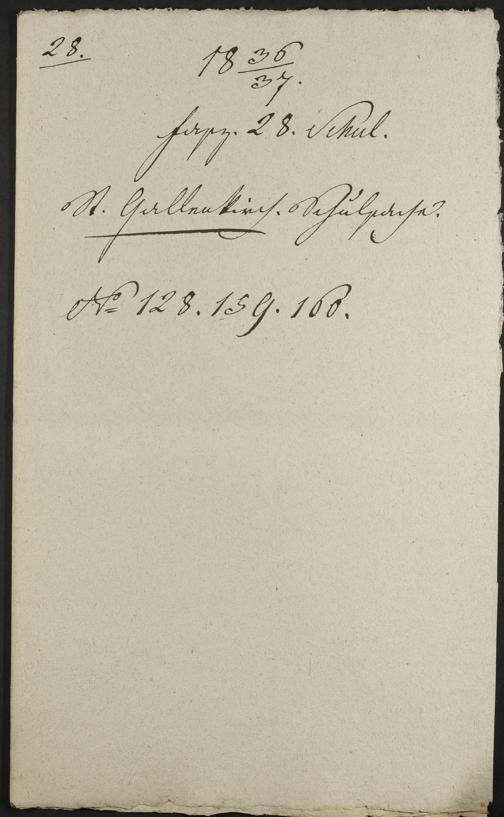 28.
18 36/37.
Fasz. 28. Schul.
St. Gallenkirch. Schulsache.
No 128. 159. 160.